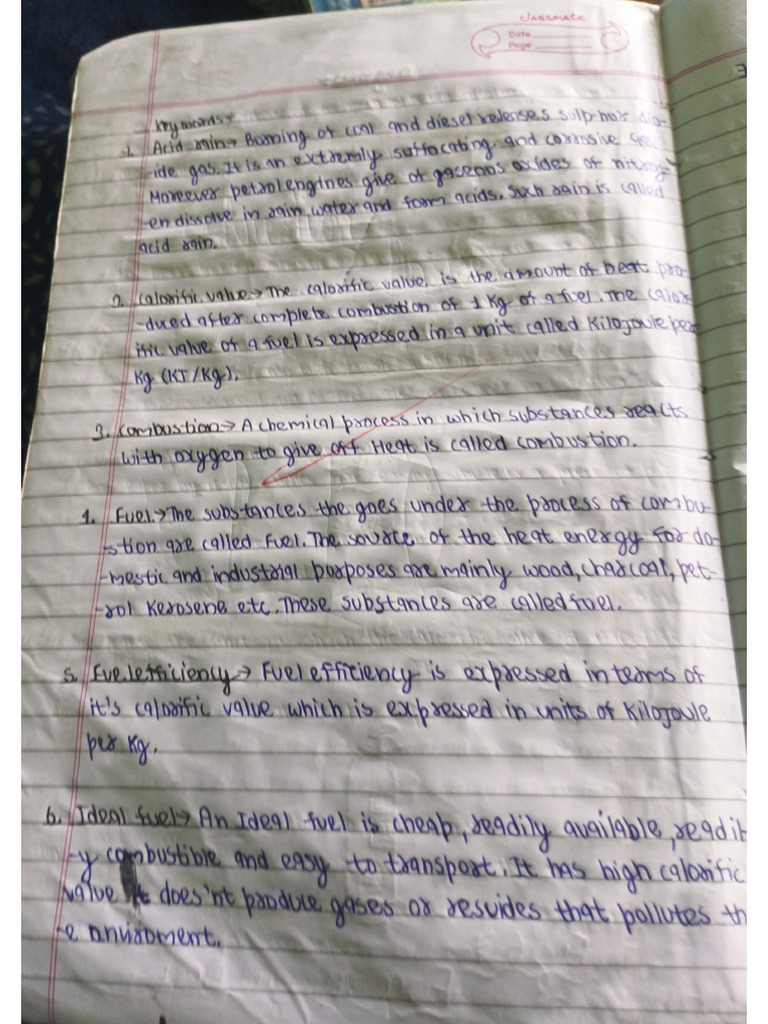 classmate
Date
Page
Keywords
1. Acid rain → Borning of coal and diesel releases sulphor dio-
-ide gas. It is an extremly suffocating and corrosive
Moreever petrol engines give of gaseous oxides of nitrog-
en dissolve in rain water and form acids. Such rain is called
acid rain.
2. Calorific value → The calorific value is the amount of heat pro-
-duced after complete combustion of 1 Kg of a fuel. The calor-
ific value of a fuel is expressed in a unit called Kilojoule per
Kg (KJ/Kg).
3. Combustion → A chemical process in which substances reacts
with oxygen to give off Heat is called combustion.
4. Fuel. → The substances the goes under the process of combu-
-stion are called fuel. The source of the heat energy for do-
-mestic and industrial purposes are mainly wood, charcoal, pet-
-rol Kerosene etc. These substances are called fuel.
5. Fuel efficiency → Fuel efficiency is expressed in terms of
it's calorific value which is expressed in units of Kilojoule
per Kg.
6. Ideal fuel → An Ideal fuel is cheap, readily available, readil
-y combustible and easy to transport. It has high calorific
value It does'nt produce gases or resvides that pollutes th
-e anviroment.